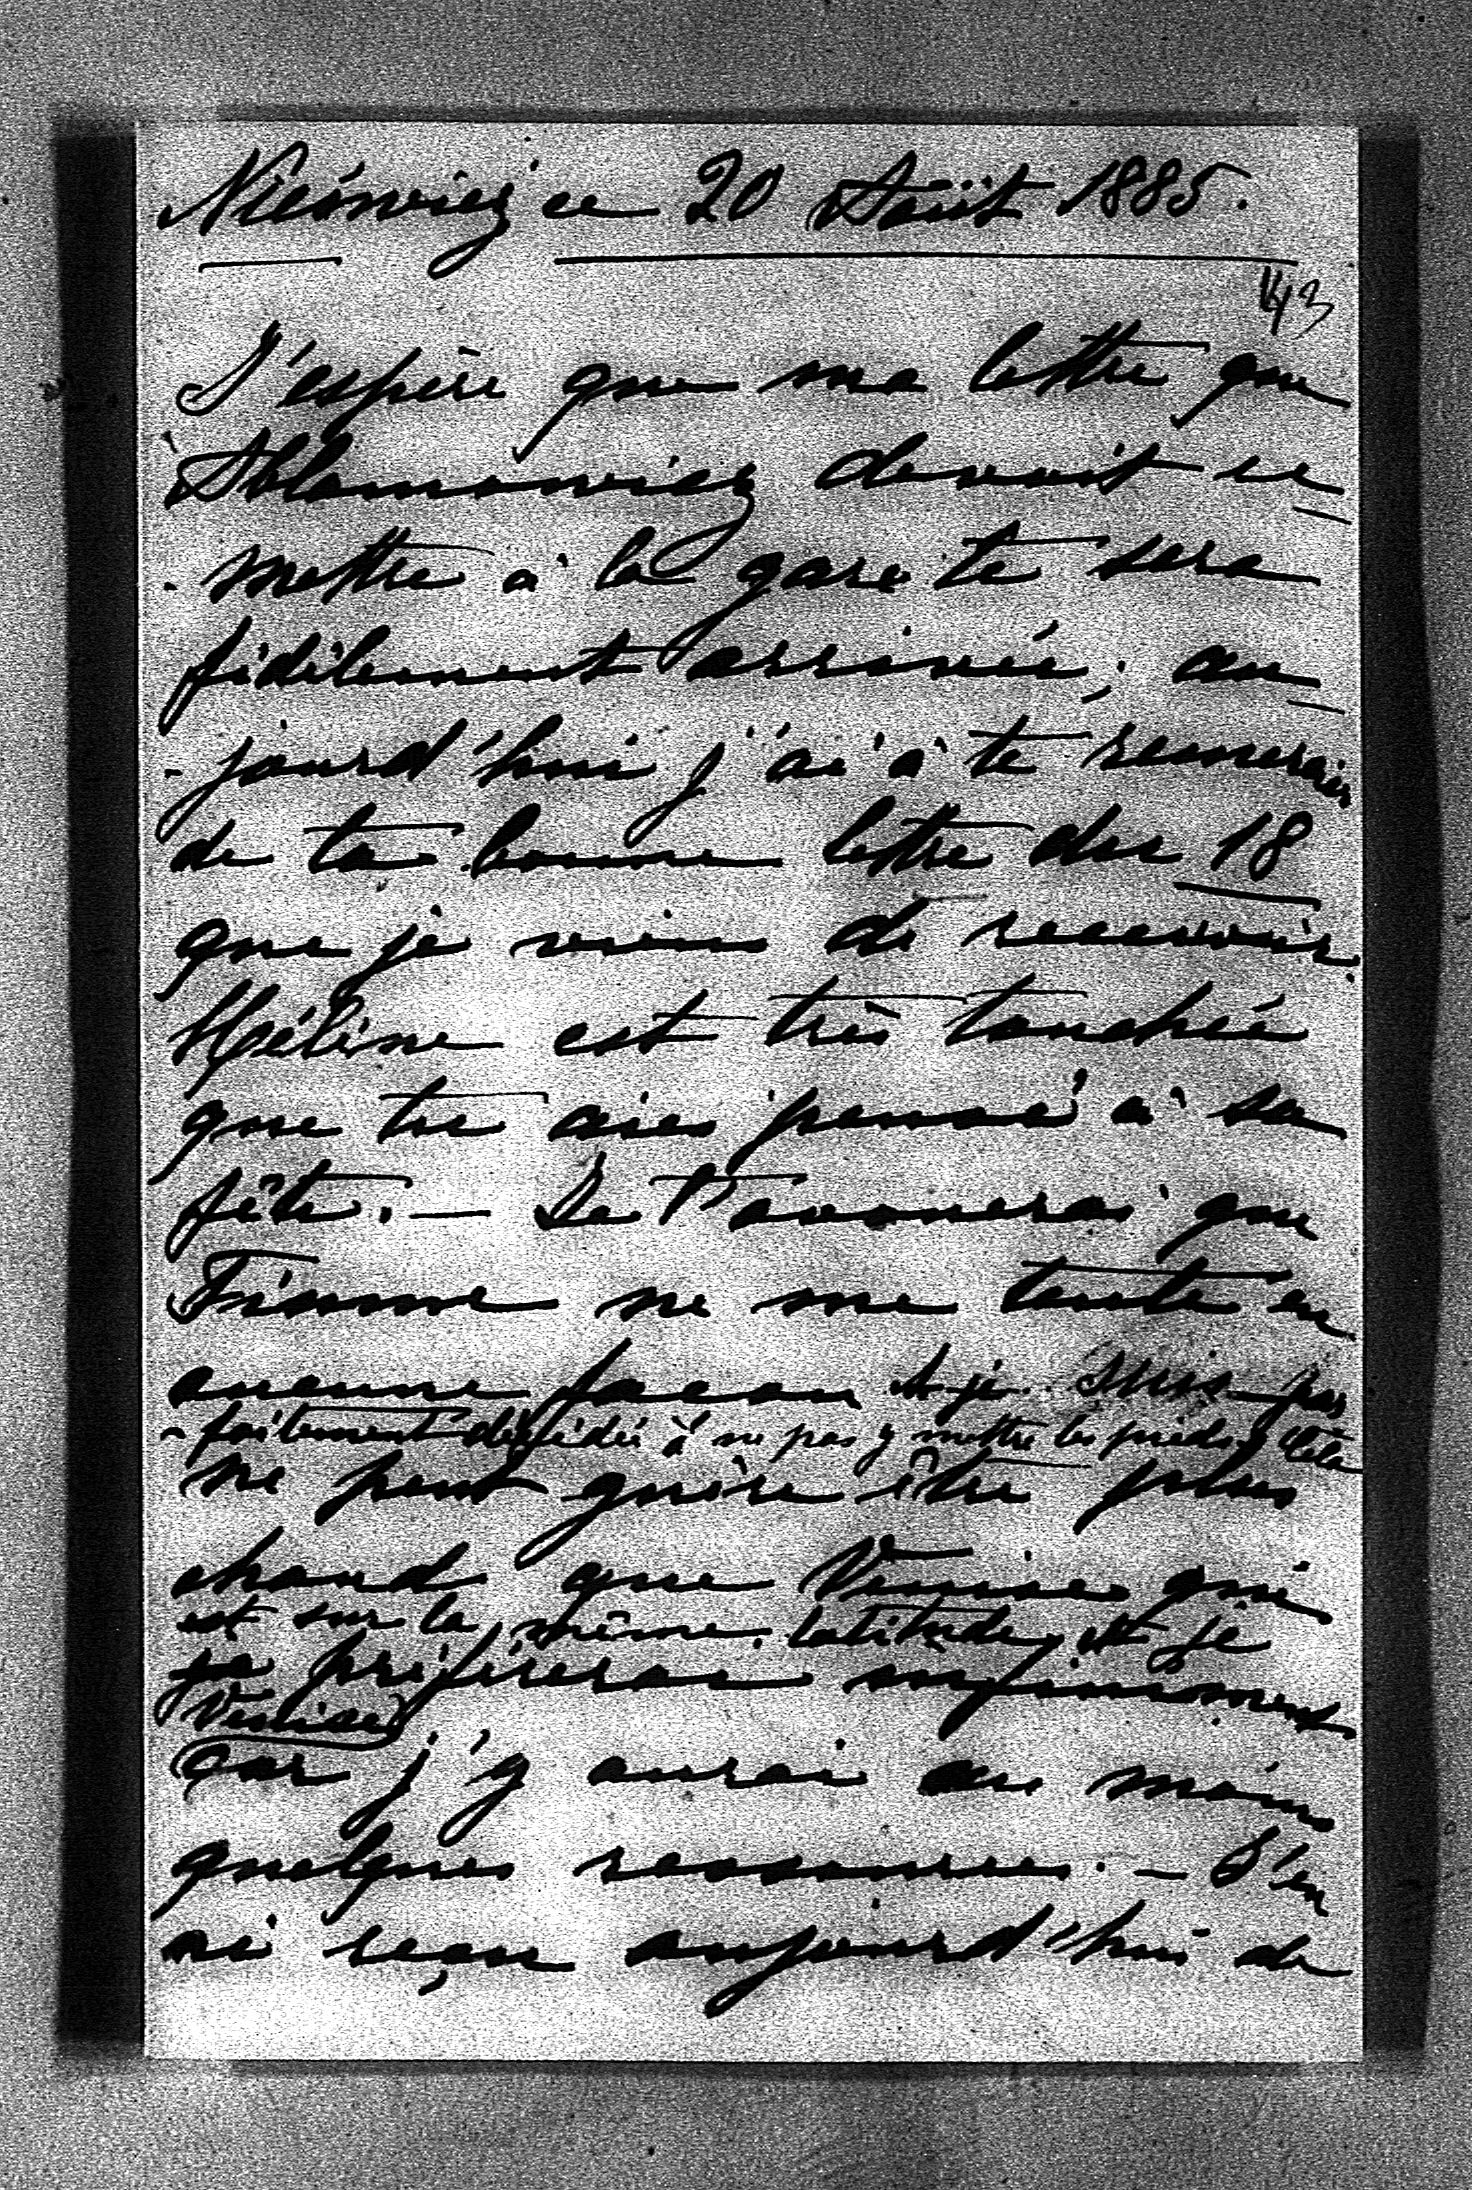 Nieświez ce 20 Août 1885.
143
J'espère que ma lettre que
Ablamowicz devait re
-mettre à la gare te sera
fidèlement arrivée, au
-jourd'hui j'ai à te remercier
de ta bonne lettre du 18
que je viens de recevoir.
Hélène est très touchée
que tu aies pensé à sa
fête. — Je t'avouerai que
Fiume ne me tente en
aucune façon et je suis par
-faitement décidée à ne pas y mettre les pieds, cela
ne peut guère être plus
chaud que Venise qui
est sur la même latitude, et je
préférerais infiniment
Venise
car j'y aurai au moins
quelques ressources. — J'en
ai reçu aujourd'hui de